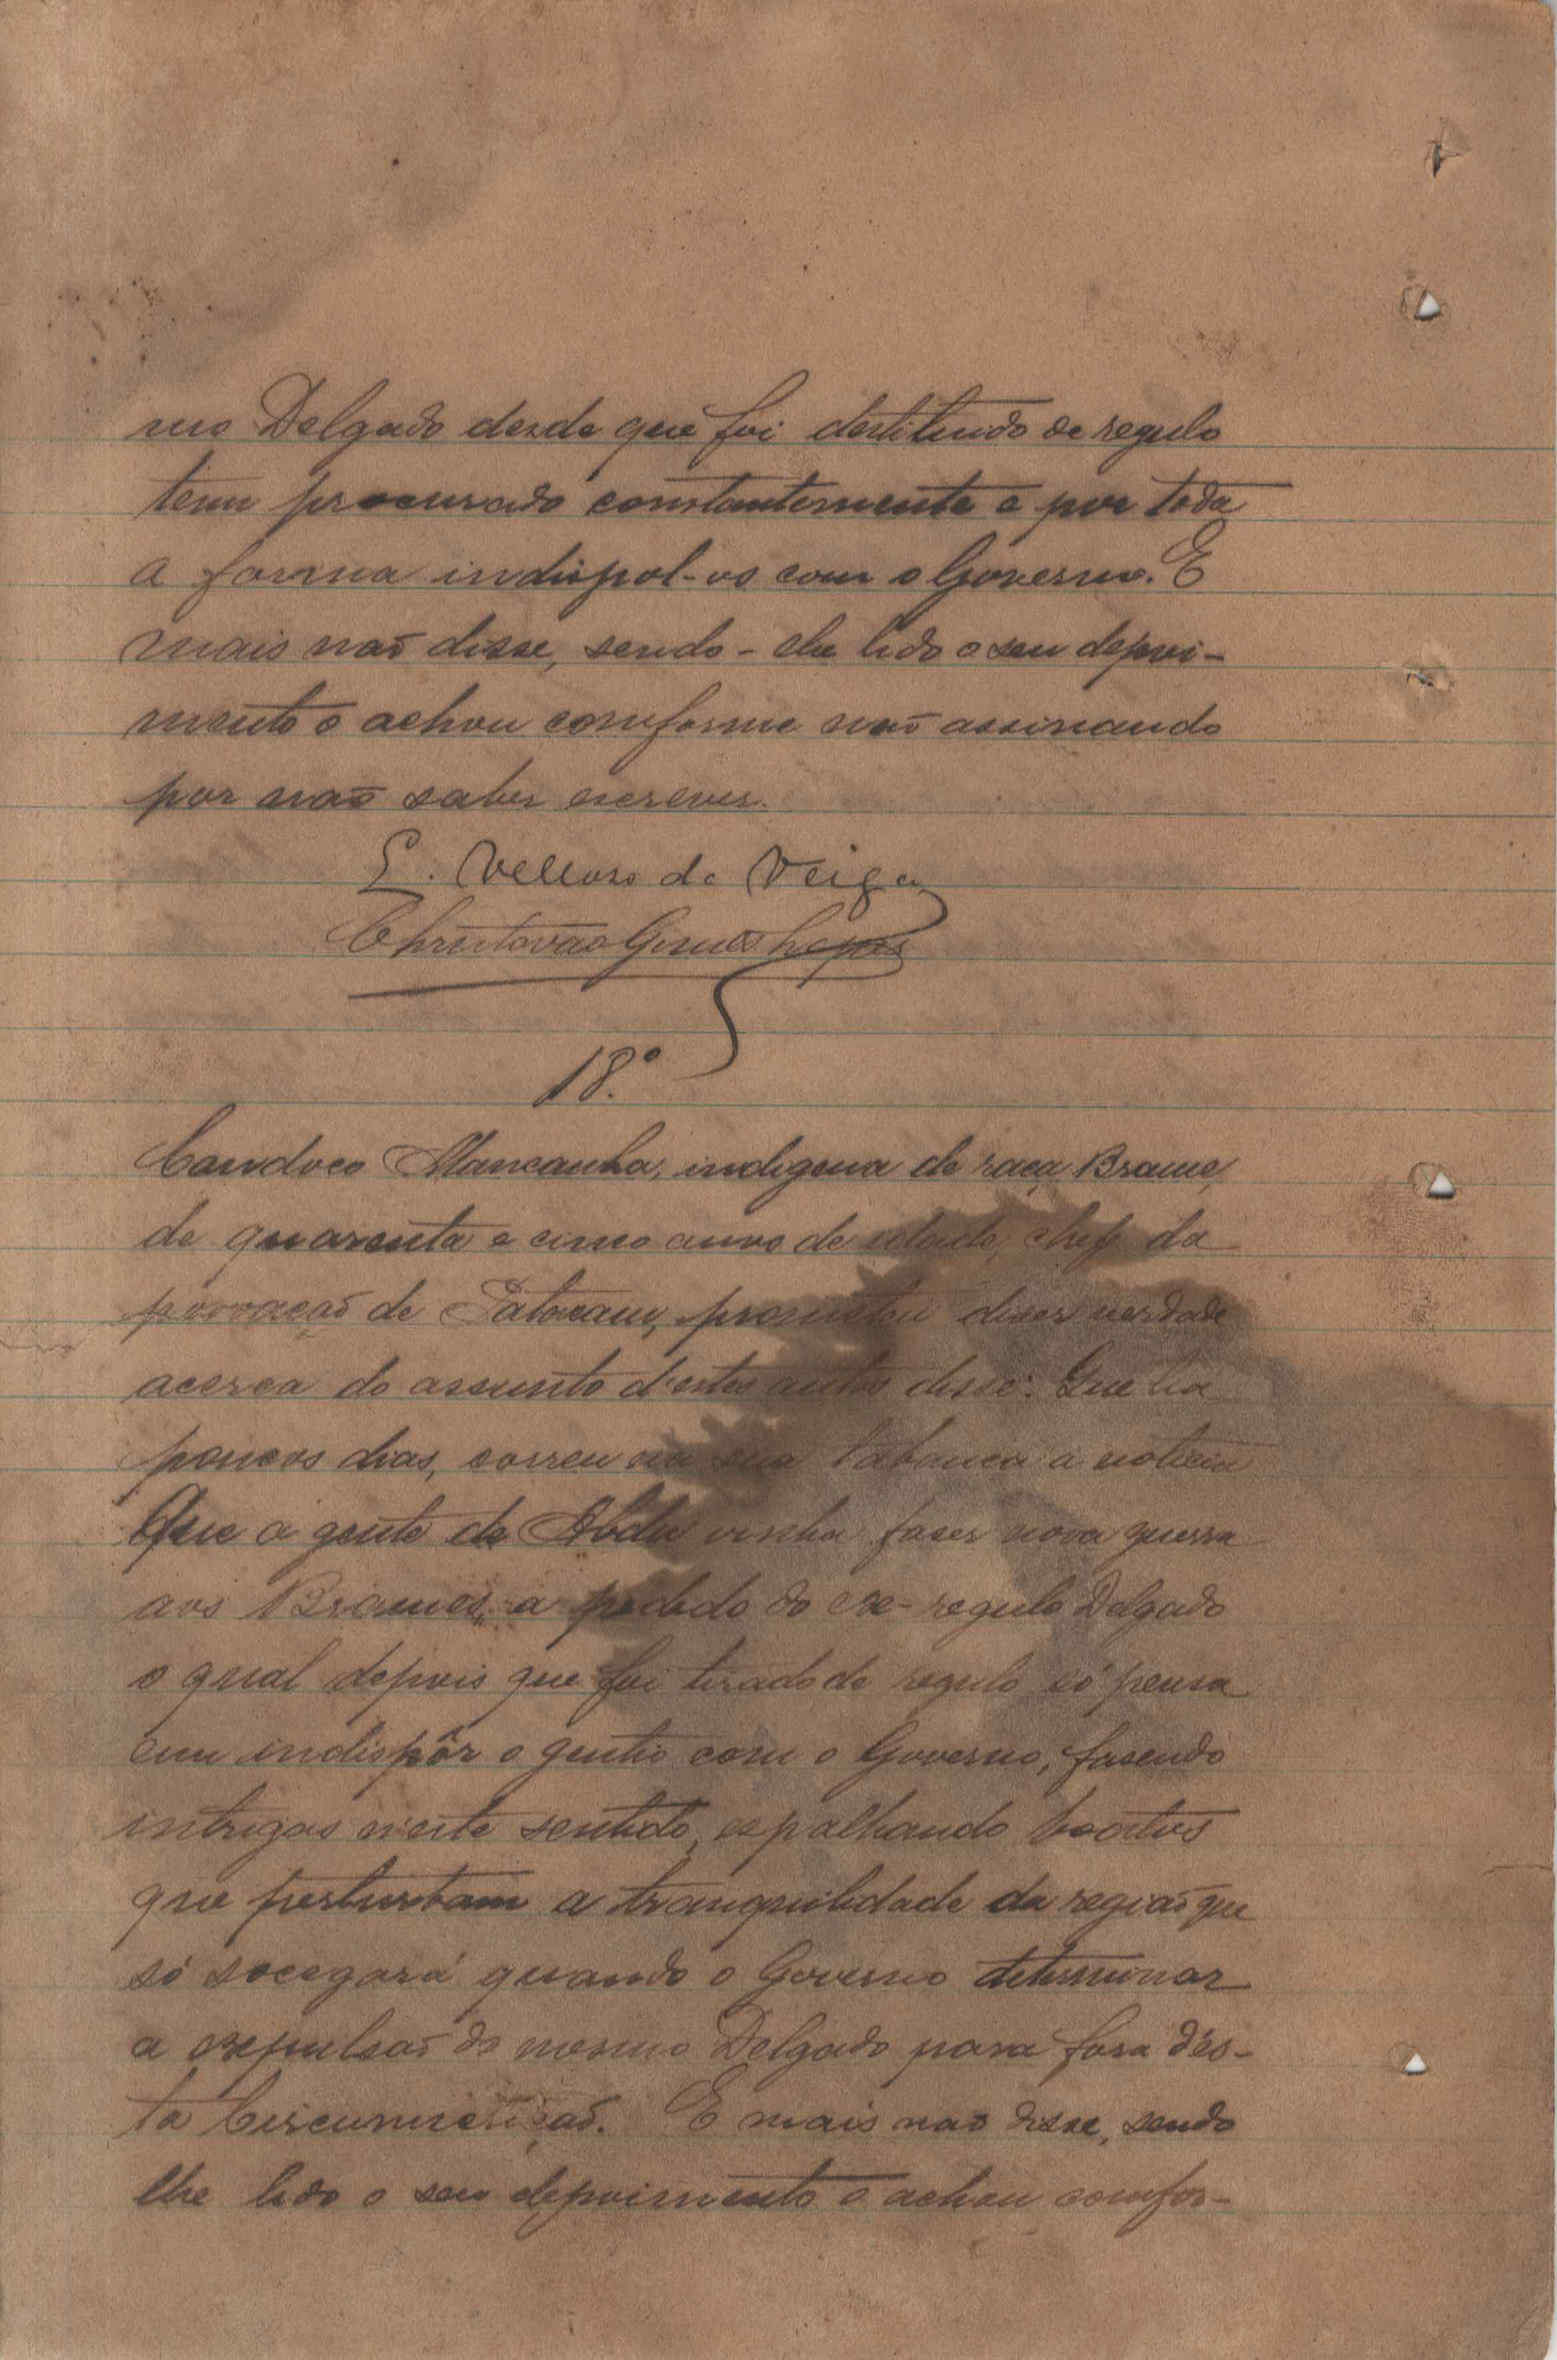 mo Delgado desde que foi destituido de regulo
tem procurado constantemente e por toda
a forma indispol-os com o Governo. E
mais não disse, sendo-lhe lido o seu depoi-
mento o achou conforme não assinando
por não saber escrever.
L. Velloso da Veiga
Christovão Gomes Lopes
18.º
Candoco Mancanha, indigena de raça Brame,
de quarenta e cinco anos de idade, chefe da
povoação de prometeu dizer verdade
acerca do assunto d'estes autos disse: Que ha
poucos dias, correu na sua tabanca a noticia
Que a gente de Abdu vinha faser nova guerra
aos Brames, a pedido do ex-regulo Delgado
o qual depois que foi tirado de regulo só pensa
em indispôr o gentio com o Governo, fasendo
intrigas n'este sentido, espalhando boatos
que perturbam a tranquilidade da região que
só socegará quando o Governo determinar
a expulsão do mesmo Delgado para fora dés-
ta Circunscrição. E mais não disse, sendo
lhe lido o seu depoimento o achou confor-